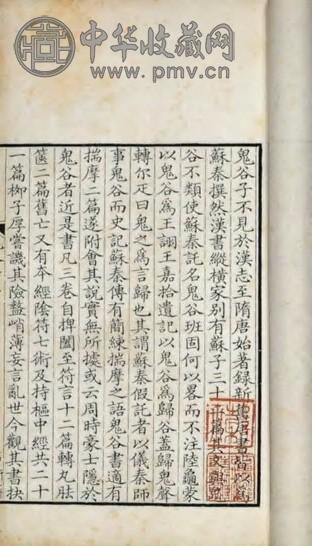 中华收藏网
www.pmv.cn
鬼谷子不見於漢志至隋唐始著録新舊唐書皆以爲
蘇秦撰然漢書縱橫家别有蘇子三十一篇其文與鬼
谷不類使蘇秦託名鬼谷班固何以畧而不注陸龜蒙
以鬼谷爲王詡王嘉拾遺記以鬼谷爲歸谷蓋歸鬼聲
轉尔疋曰鬼之爲言歸也其謂蘇秦假託者以儀秦師
事鬼谷而史記蘇秦傳有簡練揣摩之語鬼谷書適有
揣摩二篇遂附會其說實無所據或云周時豪士隱於
鬼谷者近是書凡三卷自捭闔至符言十二篇轉丸胠
篋二篇舊亡又有本經陰符七術及持樞中經共二十
一篇柳子厚嘗譏其險盭峭薄妄言亂世今觀其書抉